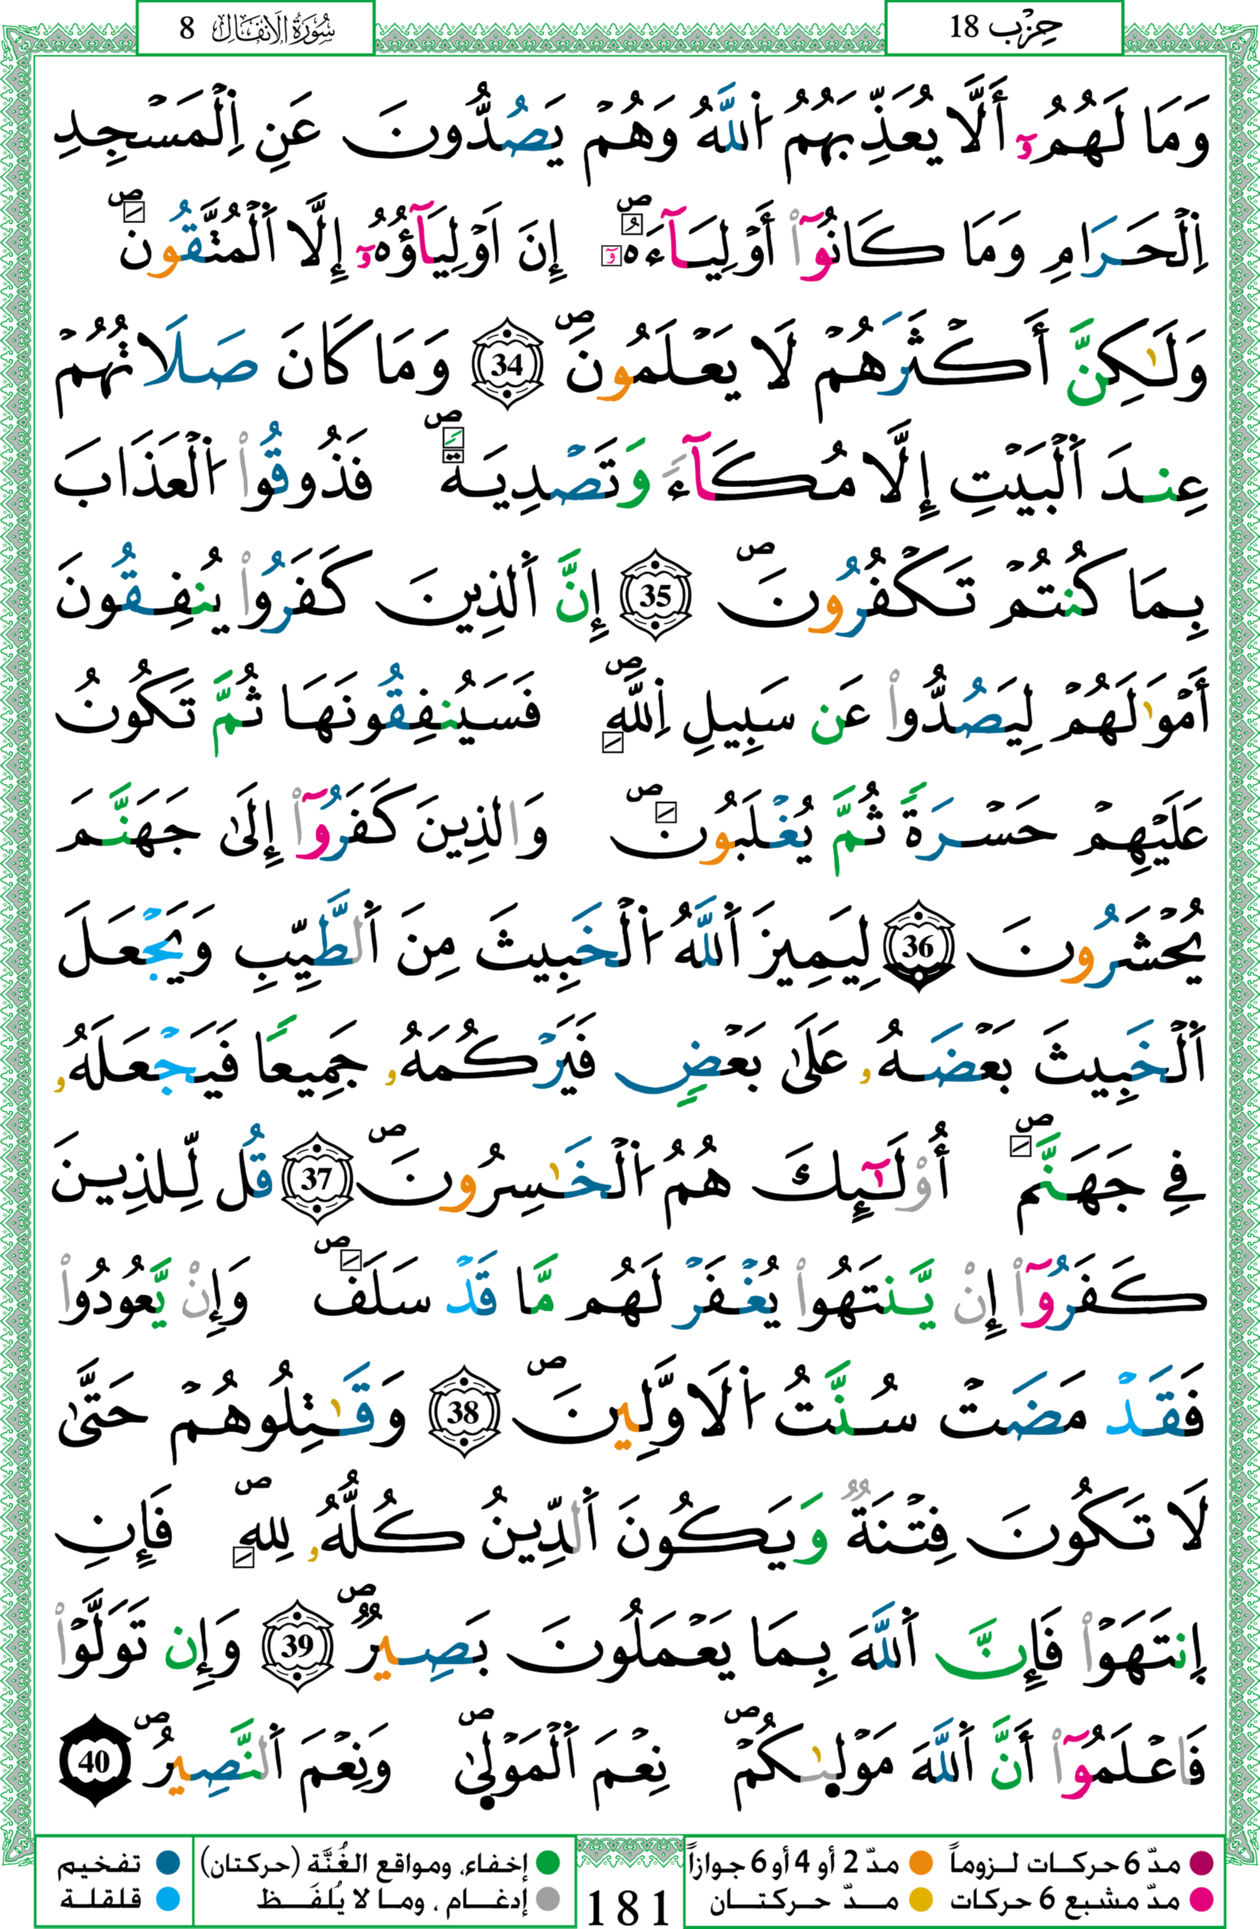 حِزْب 18
سُورَةُ الأَنفَال 8
وَمَا لَهُمُۥٓ أَلَّا يُعَذِّبَهُمُ اُ۬للَّهُ وَهُمْ يَصُدُّونَ عَنِ اِ۬لْمَسْجِدِ
اِ۬لْحَرَامِ وَمَا كَانُوٓاْ أَوْلِيَآءَهُۥٓ ص إِنَ اَوْلِيَآؤُهُۥٓ إِلَّا اَ۬لْمُتَّقُونَ ص
وَلَٰكِنَّ أَكْثَرَهُمْ لَا يَعْلَمُونَ ص 34 وَمَا كَانَ صَلَاتُهُمْ
عِندَ اَ۬لْبَيْتِ إِلَّا مُكَآءً وَتَصْدِيَةً ص فَذُوقُواْ اُ۬لْعَذَابَ
بِمَا كُنتُمْ تَكْفُرُونَ ص 35 إِنَّ اَ۬لذِينَ كَفَرُواْ يُنفِقُونَ
أَمْوَٰلَهُمْ لِيَصُدُّواْ عَن سَبِيلِ اِ۬للَّهِ ص فَسَيُنفِقُونَهَا ثُمَّ تَكُونُ
عَلَيْهِمْ حَسْرَةً ثُمَّ يُغْلَبُونَ ص وَالذِينَ كَفَرُوٓاْ إِلَىٰ جَهَنَّمَ
يُحْشَرُونَ 36 لِيَمِيزَ اَ۬للَّهُ اُ۬لْخَبِيثَ مِنَ اَ۬لطَّيِّبِ وَيَجْعَلَ
اَ۬لْخَبِيثَ بَعْضَهُۥ عَلَىٰ بَعْضٍ فَيَرْكُمَهُۥ جَمِيعًا فَيَجْعَلَهُۥ
فِي جَهَنَّمَ ص أُوْلَٰٓئِكَ هُمُ اُ۬لْخَٰسِرُونَ ص 37 قُل لِّلذِينَ
كَفَرُوٓاْ إِنْ يَّنتَهُواْ يُغْفَرْ لَهُم مَّا قَدْ سَلَفَ ص وَإِنْ يَّعُودُواْ
فَقَدْ مَضَتْ سُنَّتُ اُ۬لَاوَّلِينَ ص 38 وَقَٰتِلُوهُمْ حَتَّىٰ
لَا تَكُونَ فِتْنَةٌ وَيَكُونَ اَ۬لدِّينُ كُلُّهُۥ لِلهِ ص فَإِنِ
اِ۪نتَهَوْاْ فَإِنَّ اَ۬للَّهَ بِمَا يَعْمَلُونَ بَصِيرٌ ص 39 وَإِن تَوَلَّوْاْ
فَاعْلَمُوٓاْ أَنَّ اَ۬للَّهَ مَوْلىٰكُمْ ص نِعْمَ اَ۬لْمَوْلىٰ ص وَنِعْمَ اَ۬لنَّصِيرُ ص 40
مدّ 6 حركات لـزوماً مدّ 2 أو 4 أو 6 جوازاً
مدّ مشبع 6 حركات مــدّ حركتــان
181
إخفاء، ومواقع الغُنَّة (حركتان) تفخيم
إدغام ، وما لا يُلفَـظ قلقلة